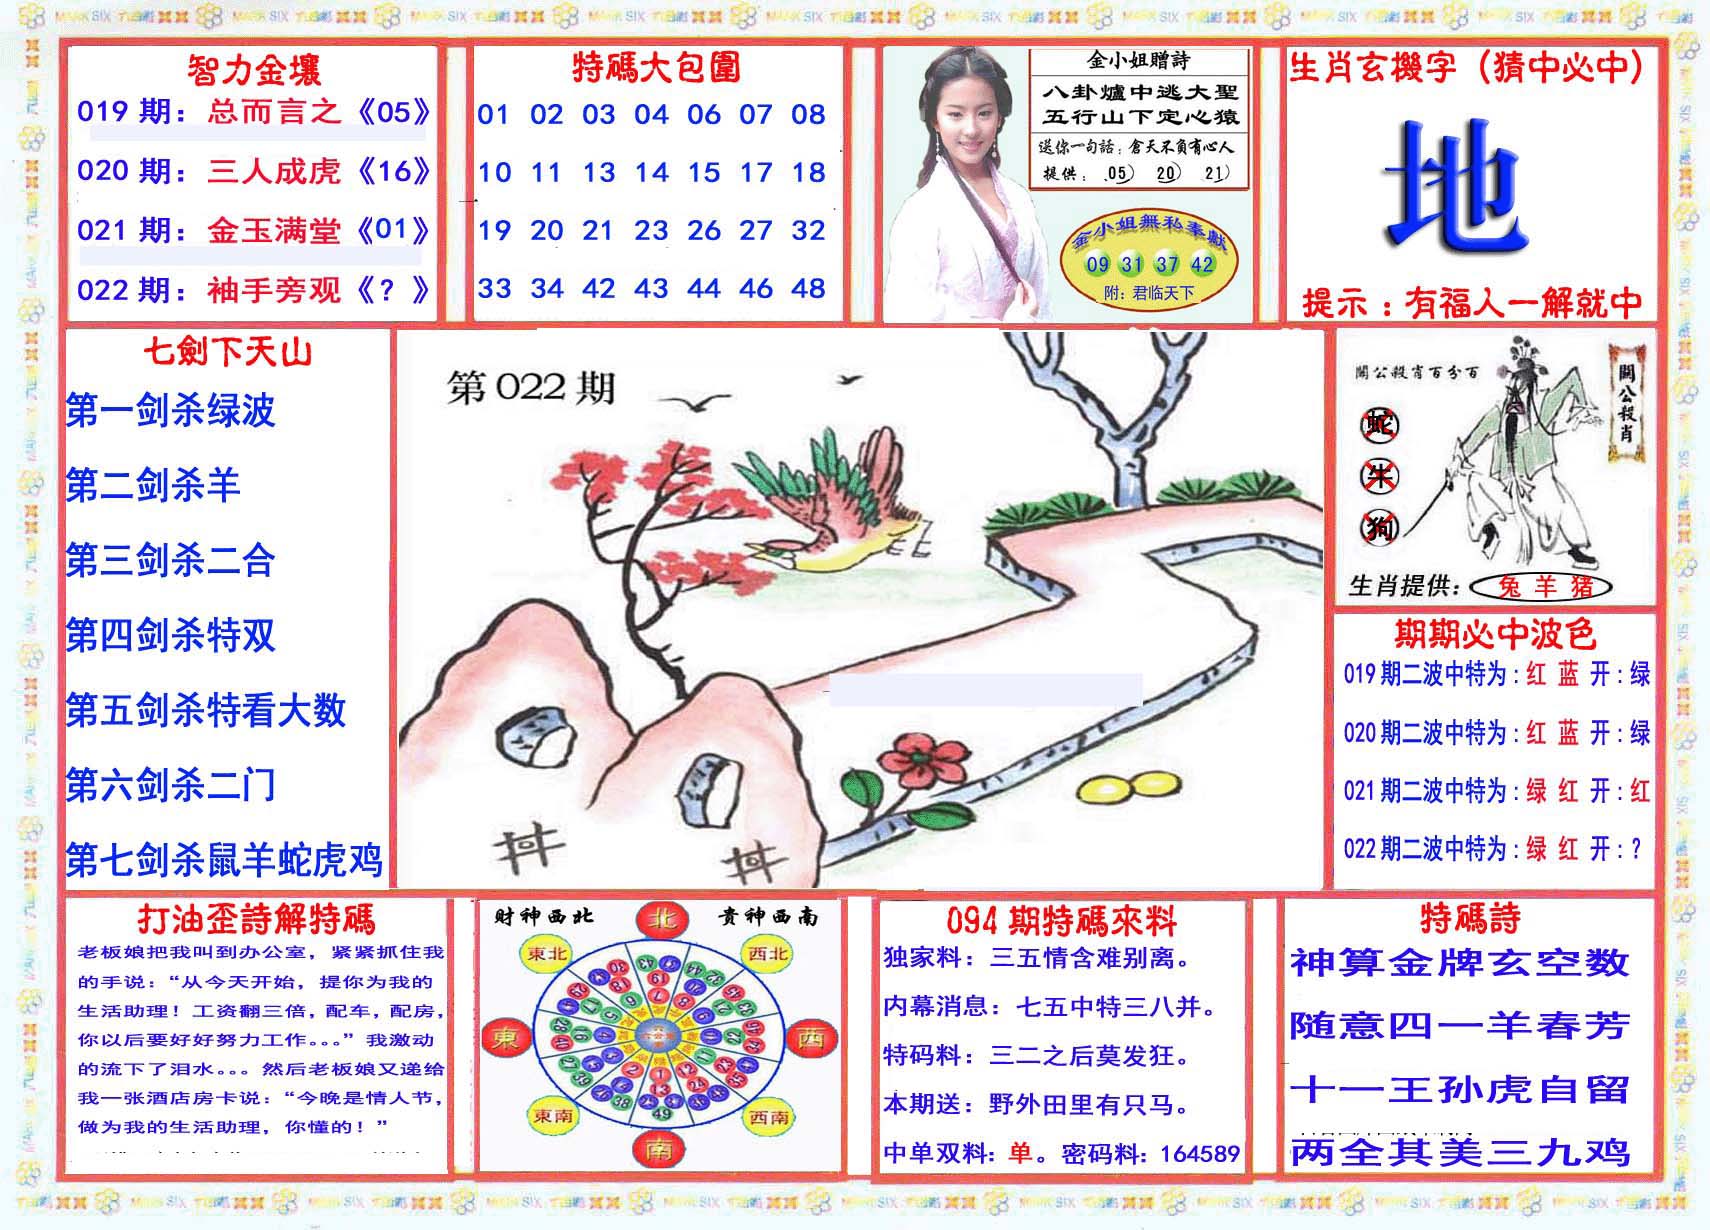 智力金壤
019 期：总而言之《05》
020 期：三人成虎《16》
021 期：金玉满堂《01》
022 期：袖手旁观《？》
特碼大包圍
01 02 03 04 06 07 08
10 11 13 14 15 17 18
19 20 21 23 26 27 32
33 34 42 43 44 46 48
金小姐贈詩
八卦爐中逃大聖
五行山下定心猿
送你一句話：倉天不負有心人
提供：05） 20） 21）
金小姐無私奉獻
09 31 37 42
附：君临天下
生肖玄機字（猜中必中）
地
提示：有福人一解就中
七劍下天山
第一剑杀绿波
第二剑杀羊
第三剑杀二合
第四剑杀特双
第五剑杀特看大数
第六剑杀二门
第七剑杀鼠羊蛇虎鸡
第 022 期
關公殺肖百分百
關公殺肖
蛇
牛
狗
生肖提供：兔 羊 猪
期期必中波色
019 期二波中特为：红 蓝 开：绿
020 期二波中特为：红 蓝 开：绿
021 期二波中特为：绿 红 开：红
022 期二波中特为：绿 红 开：？
打油歪詩解特碼
老板娘把我叫到办公室，紧紧抓住我
的手说：“从今天开始，提你为我的
生活助理！工资翻三倍，配车，配房，
你以后要好好努力工作。。。”我激动
的流下了泪水。。。然后老板娘又递给
我一张酒店房卡说：“今晚是情人节，
做为我的生活助理，你懂的！”
財神西北 貴神西南
北
東北 西北
東 西
東南 西南
南
094 期特碼來料
独家料：三五情含难别离。
内幕消息：七五中特三八并。
特码料：三二之后莫发狂。
本期送：野外田里有只马。
中单双料：单。密码料：164589
特碼詩
神算金牌玄空数
随意四一羊春芳
十一王孙虎自留
两全其美三九鸡